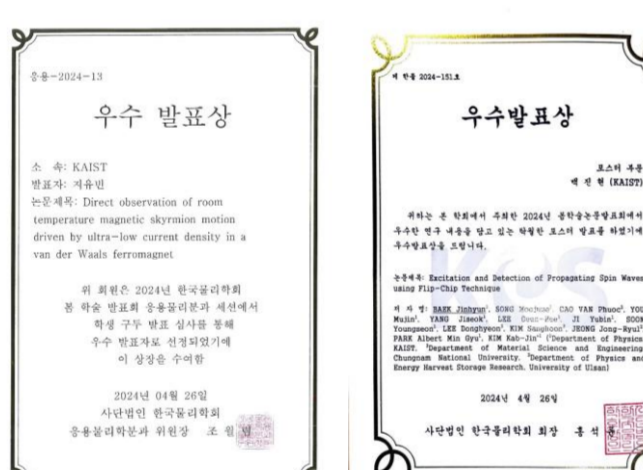 응용-2024-13
우수 발표상
소 속: KAIST
발표자: 지유빈
논문제목: Direct observation of room
temperature magnetic skyrmion motion
driven by ultra-low current density in a
van der Waals ferromagnet
위 회원은 2024년 한국물리학회
봄 학술 발표회 응용물리분과 세션에서
학생 구두 발표 심사를 통해
우수 발표자로 선정되었기에
이 상장을 수여함
2024년 04월 26일
사단법인 한국물리학회
응용물리학분과 위원장 조 월
제 한물 2024-151호
우수발표상
포스터 부문
백 진 현 (KAIST)
귀하는 본 학회에서 주최한 2024년 봄학술논문발표회에서
우수한 연구 내용을 담고 있는 탁월한 포스터 발표를 하였기에
우수발표상을 드립니다.
논문제목: Excitation and Detection of Propagating Spin Waves
using Flip-Chip Technique
저 자 명: BAEK Jinhyun¹, SONG Moojune¹, CAO VAN Phuoc², YOU
Mujin¹, YANG Jiseok¹, LEE JI Yubin¹, SOON
Youngseon¹, LEE Donghyeon¹, KIM Sanghoon³, JEONG Jong-Ryul²
PARK Albert Min Gyu¹, KIM Kab-Jin¹ (¹Department of Physics
KAIST, ²Department of Material Science and Engineering
Chungnam National University, ³Department of Physics and
Energy Harvest Storage Research, University of Ulsan)
2024년 4월 26일
사단법인 한국물리학회 회장 홍 석